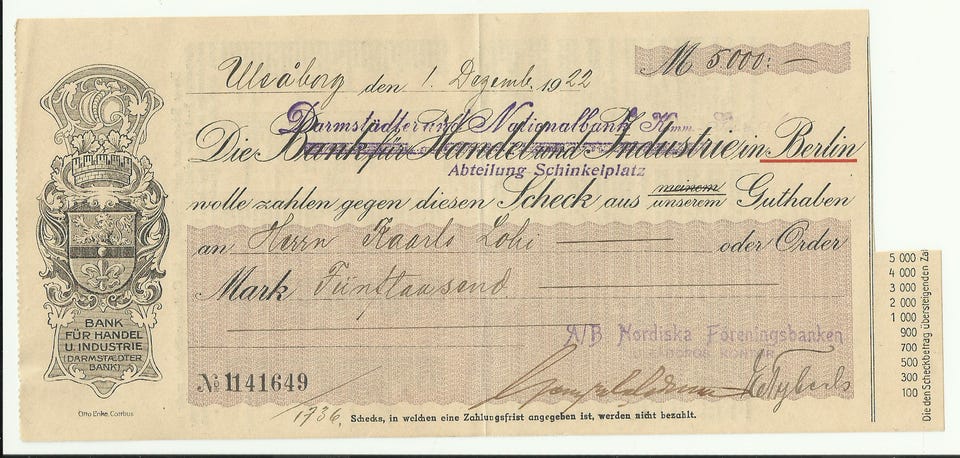 M 5000:—
Uleåborg den 1. Dezemb. 1922
Darmstädter und Nationalbank Komm.
Die Bank für Handel und Industrie in Berlin
Abteilung Schinkelplatz
wolle zahlen gegen diesen Scheck aus meinem unserem Guthaben
an Herrn Kaarlo Lohi oder Order
Mark Fünftausend
A/B Nordiska Föreningsbanken
KONTOR
BANK
FÜR HANDEL
U. INDUSTRIE
(DARMSTÆDTER
BANK)
№ 1141649
1736.
Schecks, in welchen eine Zahlungsfrist angegeben ist, werden nicht bezahlt.
Otto Enke, Cottbus
5 000
4 000
3 000
2 000
1 000
900
700
500
300
100
Die den Scheckbetrag übersteigenden Za